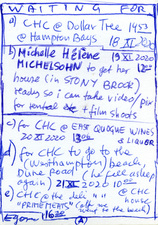 WAITING FOR
a) CHC @ Dollar Tree 1453
@ Hampton Bays
18 XI 2020
b) Michelle Hélène 19 XI 2020
MICHELSOHN to get her
house (in STONY BROOK)
ready so i can take video/pix
for rental + film shoots
c) for CHC @ EAST QUOGUE WINES
20 XI 2020 & LIQUOR
d) for CHC to go to the
(Westhampton) beach
Dune road (he fell asleep
again) 21 XI 2020
e) CHC @ the deli @ CHC
"PRIMEMEATS" house
to the beach
1620
(A)